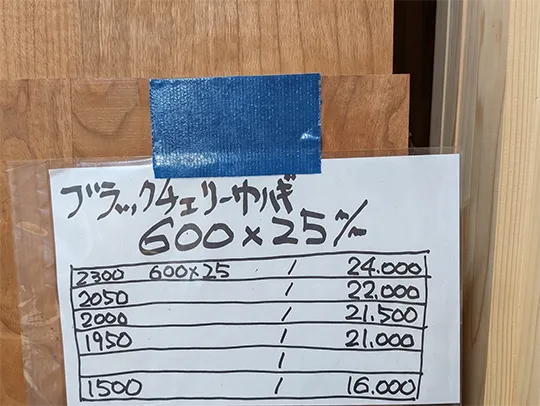 ブラックチェリー巾ハギ
600×25㍉
2300 600×25 / 24.000
2050 / 22.000
2000 / 21.500
1950 / 21.000
/
1500 / 16.000